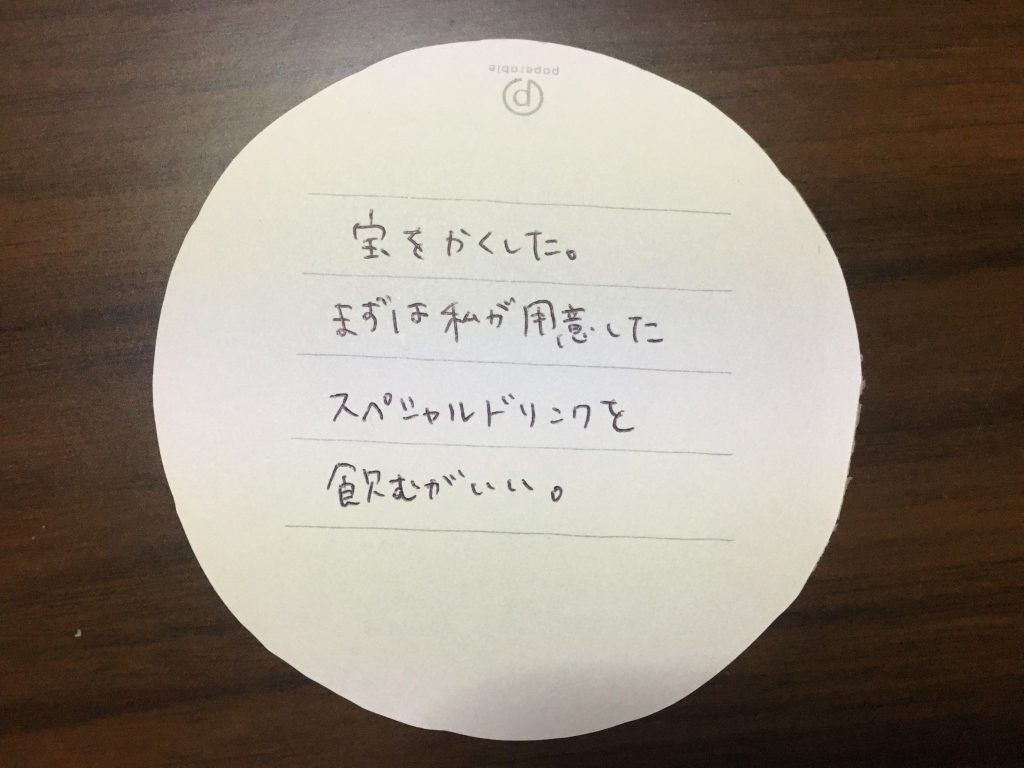 paperable
p
宝をかくした。
まずは私が用意した
スペシャルドリンクを
飲むがいい。